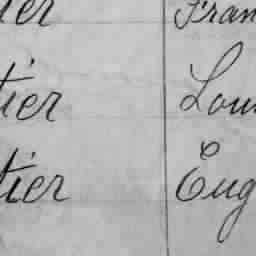 ier Fran
tier Loui
tier Eug